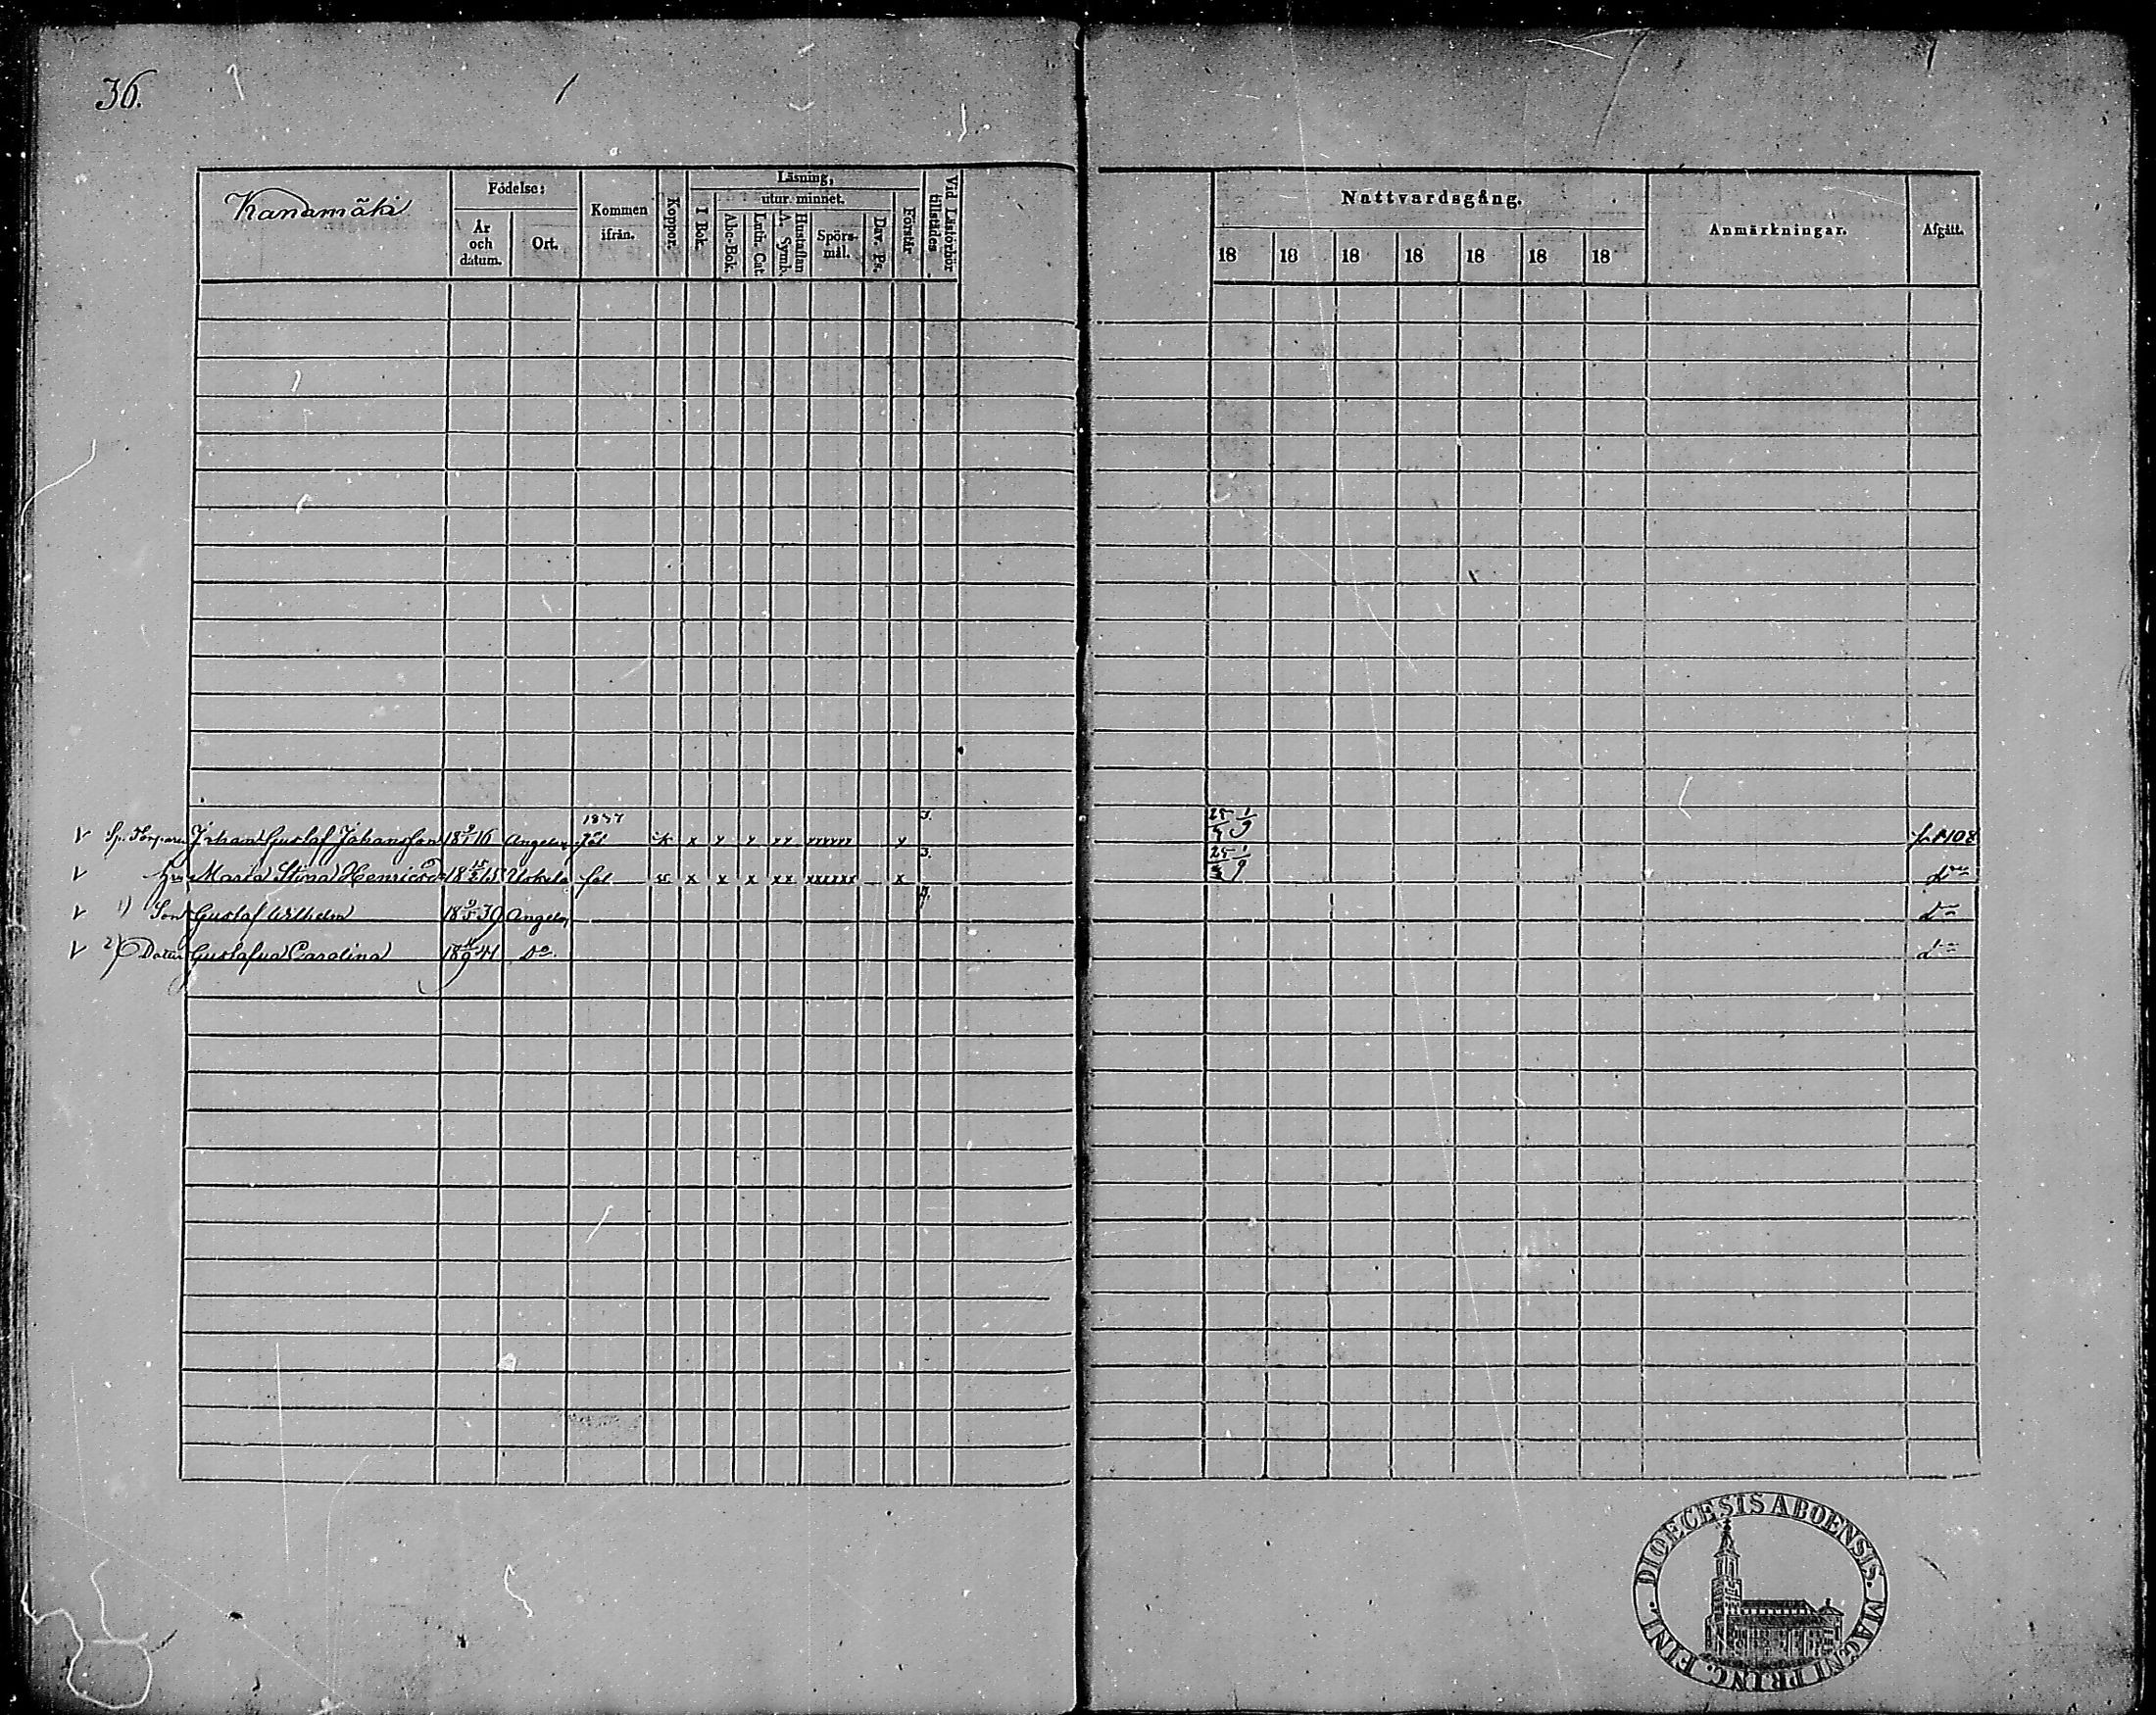 36.
Kanamäki
Födelse:
År och datum.
Ort.
Kommen ifrån.
Koppor.
Läsning,
I Bok.
utur minnet.
Abc-Bok.
Luth. Cat.
Hustaflan A. Symb.
Spörsmål.
Dav. Ps.
Förstår.
Vid Läsförhör tillstädes
Nattvardsgång.
18 18 18 18 18 18 18
Anmärkningar.
Afgått.
Johan Gustaf Johansson 18 9/1 16 x y y xx xxxxxx y 25 1/9 108
Maria Stina Henricsd. 18 15 Uskela x x x xx xxxxxx x 3. 25 1/9
1) Son Gustaf Wilhelm 18 9/5 39 Angeln
2) Dotter Gustafva Carolina 18 9 41 Do
DIOECESIS ABOENSIS. MAGNI PRINC. FINL.